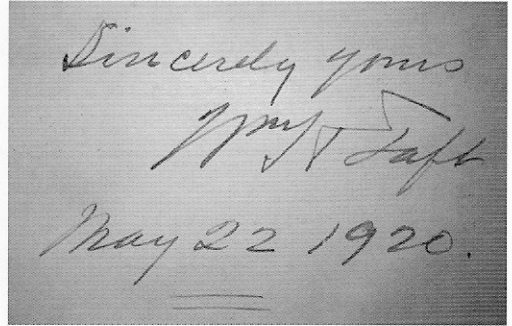 Sincerely yours
Wm H Taft
May 22 1920.